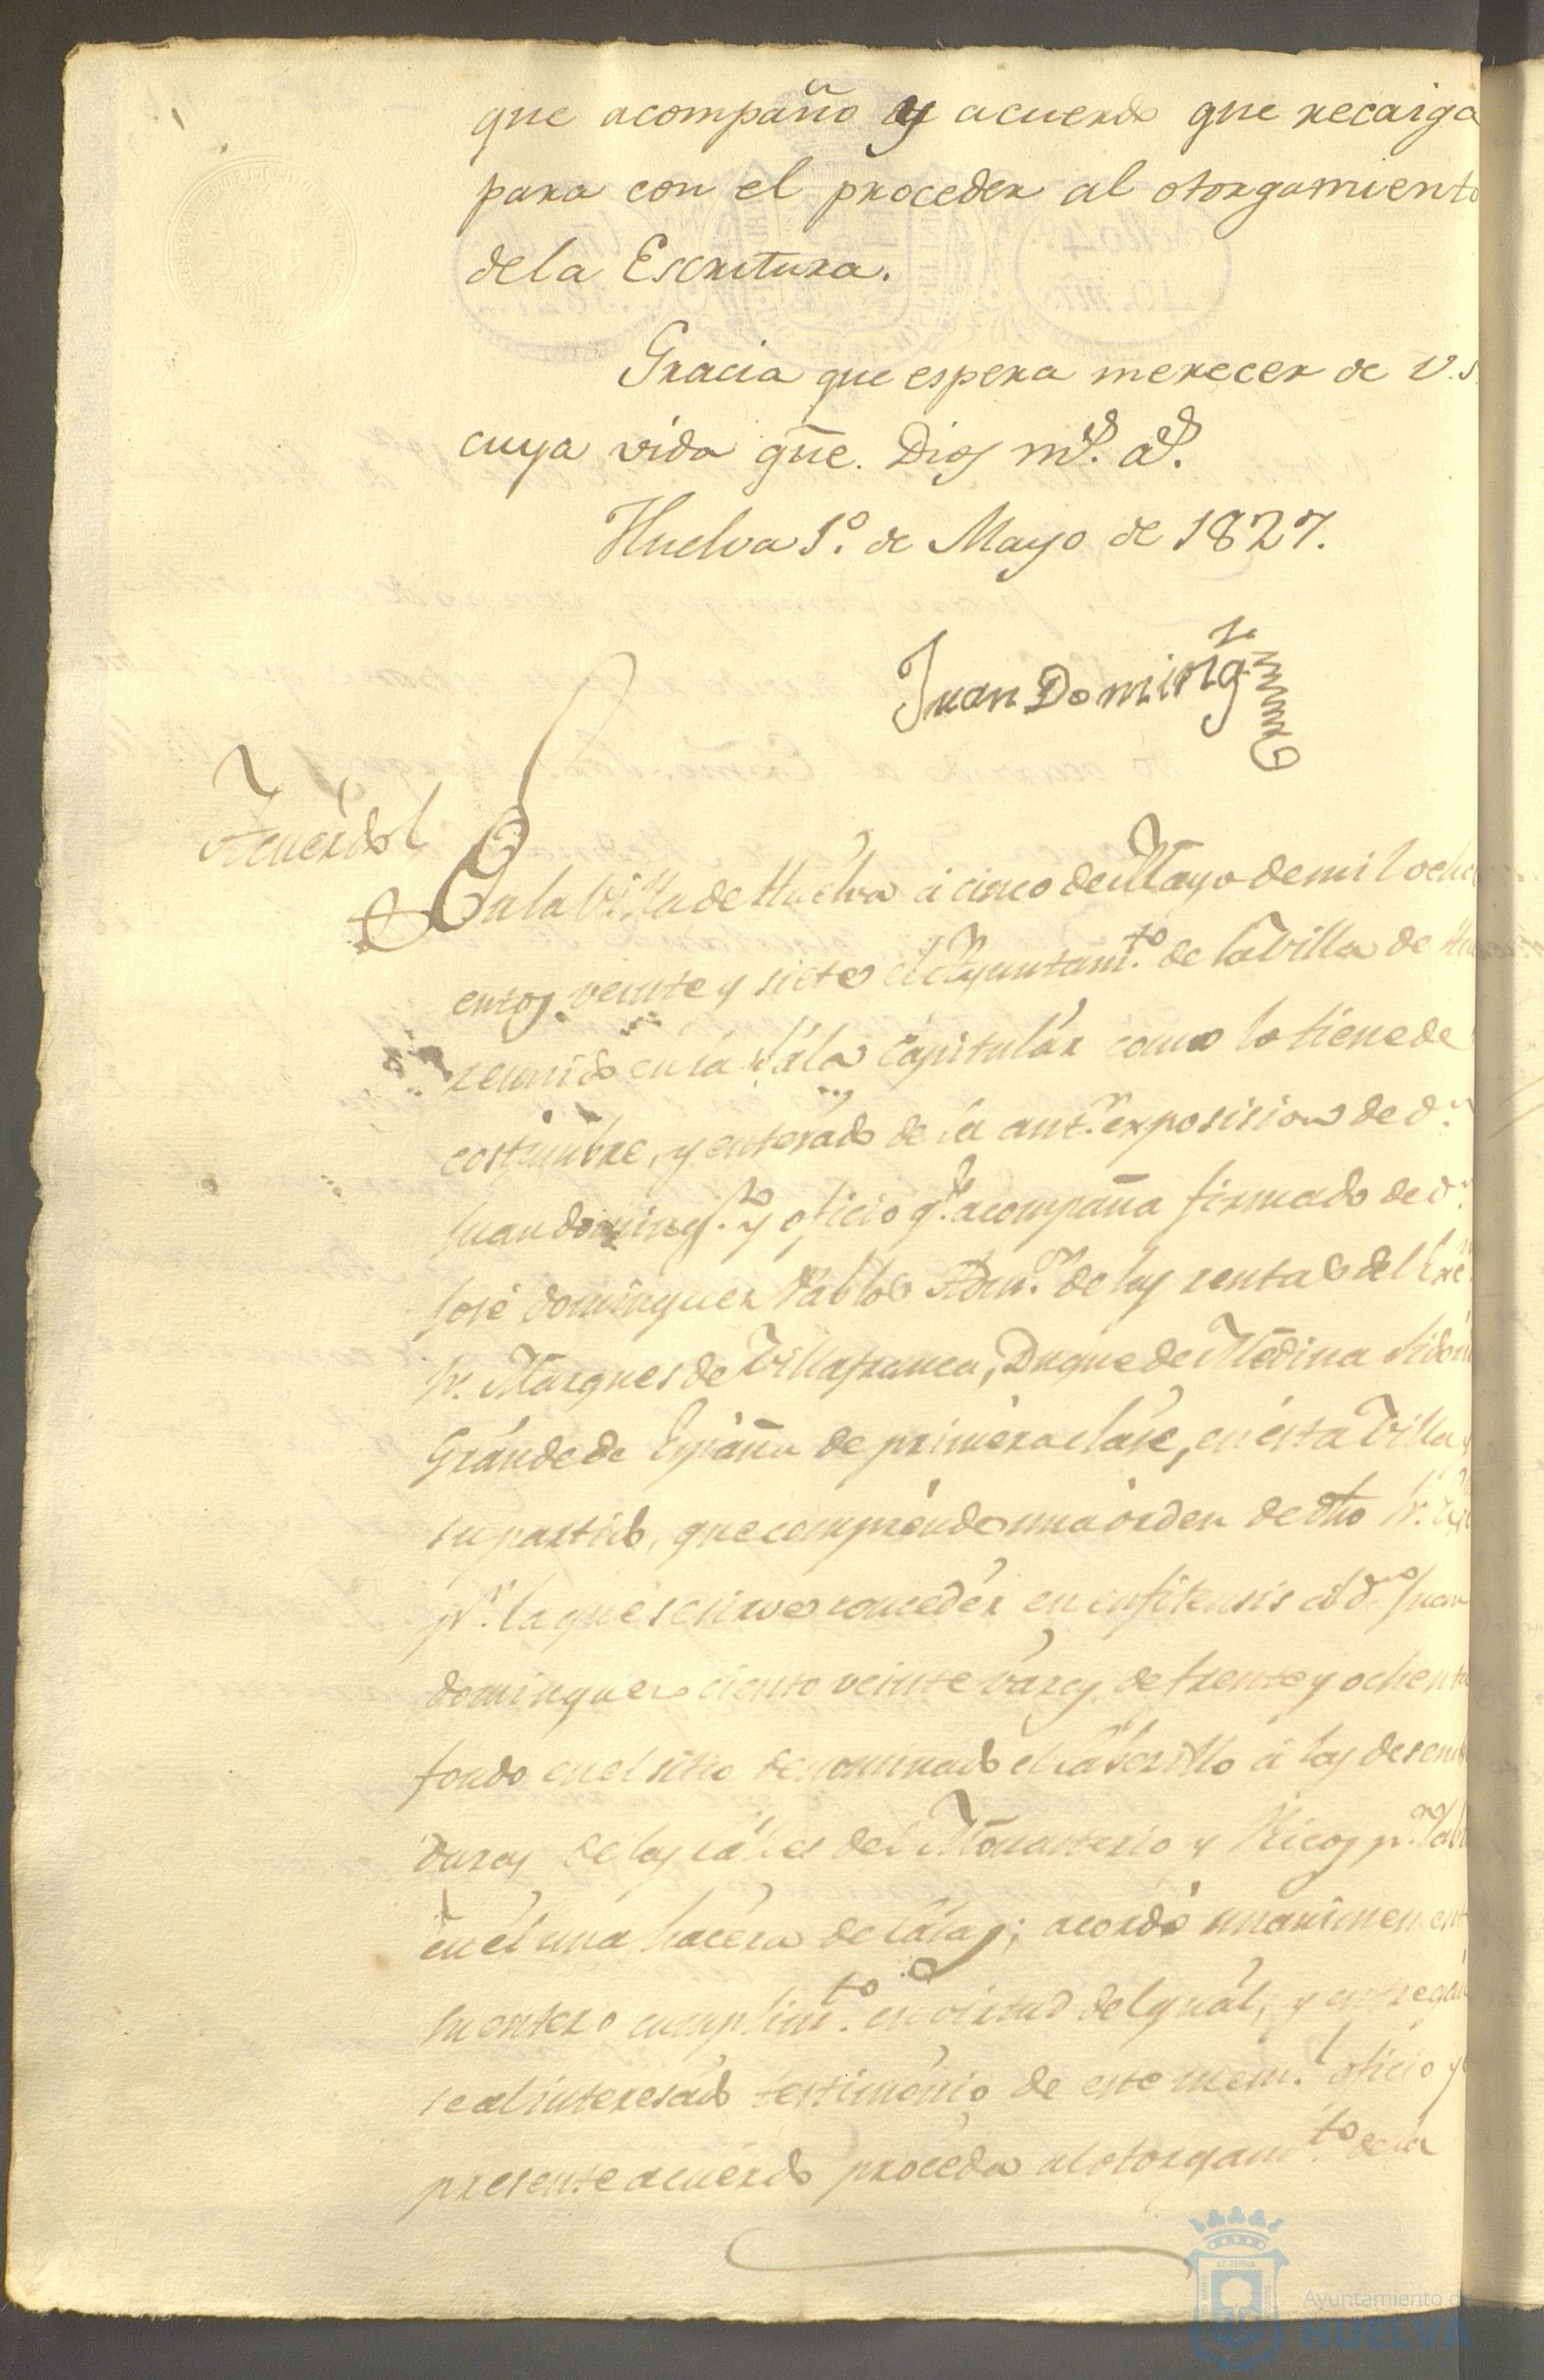 que acompaño y acuerdo que recaiga
para con el proceder al otorgamiento
dela Escritura.
Gracia que espera merecer de V.S.
cuya vida gũe. Dios ms. as.
Huelva 1º. de Mayo de 1827.
Juan Doming
Acuerdo
En la Villa de Huelva á cinco de Mayo de mil oche
entos veinte y siete el Ayuntamto. de la Villa de Hu
reunido en la Sala Capitulár como lo tiene de
costumbre, y enterado de la antr. exposision de Dn.
Juan Domingz. y oficio qe. acompaña firmado de Dn.
José Dominguez Pablos Admor. de las rentas del Exm
Sr. Marques de Villafranca, Duque de Medina Sidon
Grande de España de primera clase, en esta Villa y
su partido, que comprende una orden de dho Sr.
pr. la que se sirve concedér en enfiteusis á Dn. Juan
Dominguez ciento veinte varas de frente y ochenta
fondo en el sitio denominado el Cabezillo á las desem
duras de las calles del Monasterio y Ricos pa.
en él una hacera de casas; acordó unanimement
su entero cumplimto. en virtud del qual, y entregan
se al interesado testimonio de este meml. oficio y
presente acuerdo proceda al otorgamto. de la
Ayuntamiento de
HUELVA